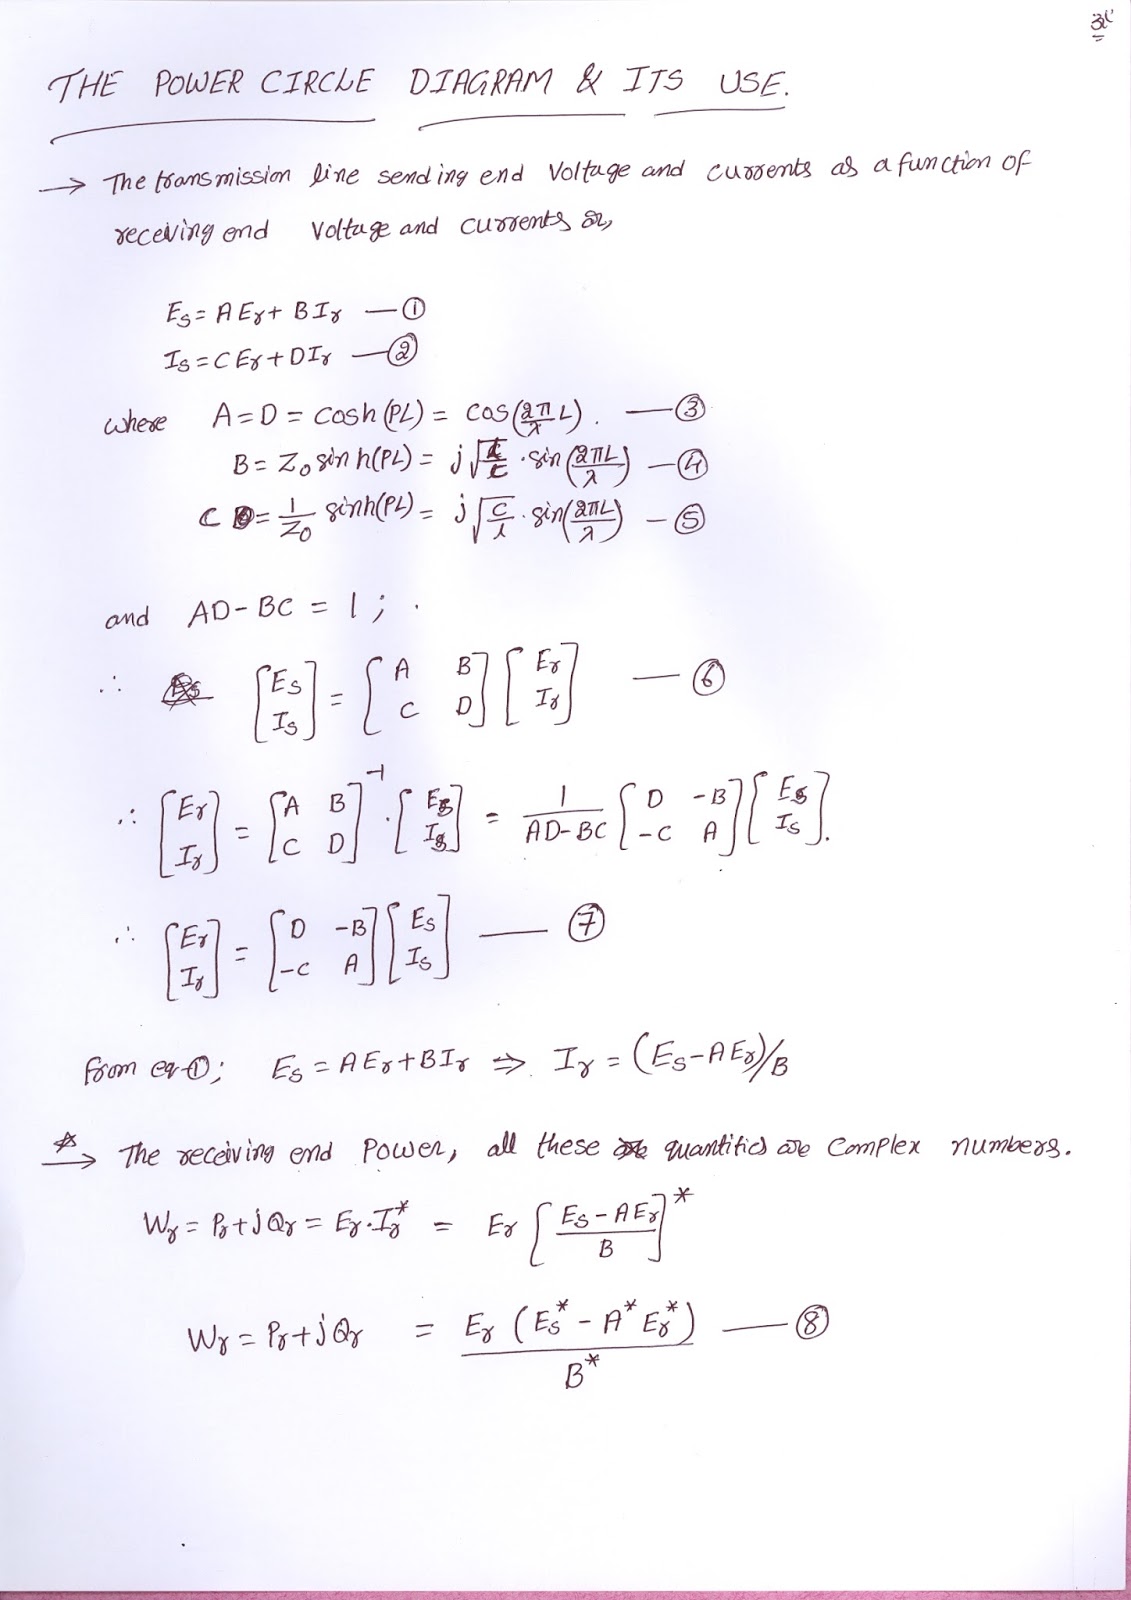 THE POWER CIRCLE DIAGRAM & ITS USE.
→ The transmission line sending end Voltage and currents as a function of
receiving end Voltage and currents is,
Es = A Er + B Ir — ①
Is = C Er + D Ir — ②
where A = D = cosh (PL) = cos (2π/λ L). — ③
B = Z₀ sinh(PL) = j √(l/c) · sin (2πL/λ) — ④
C = 1/Z₀ sinh(PL) = j √(c/l) · sin (2πL/λ) — ⑤
and AD - BC = 1 ;
∴ [Es Is] = [A B C D] [Er Ir] — ⑥
∴ [Er Ir] = [A B C D]⁻¹ · [Es Is] = 1/(AD-BC) [D -B -C A] [Es Is].
∴ [Er Ir] = [D -B -C A] [Es Is] — ⑦
from eq-①; Es = A Er + B Ir ⇒ Ir = (Es - A Er)/B
* → The receiving end Power, all these quantities are complex numbers.
Wr = Pr + jQr = Er · Ir* = Er [(Es - A Er)/B]*
Wr = Pr + jQr = Er (Es* - A* Er*)/B* — ⑧